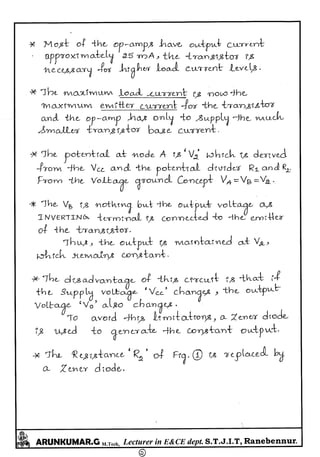 * Most of the op-amps have output current
approximately 25 mA, the transistor is
necessary for higher load current levels.
* The maximum load current is now the
maximum emitter current for the transistor
and the op-amp has only to supply the much
smaller transistor base current.
* The potential at node A is 'V2' which is derived
from the Vcc and the potential divider R1 and R2
From the voltage ground concept VA = VB = V2.
* The VB is nothing but the output voltage as
INVERTING terminal is connected to the emitter
of the transistor.
Thus, the output is maintained at V2,
which remains constant.
* The disadvantage of this circuit is that if
the supply voltage 'Vcc' changes, the output
voltage 'Vo' also changes.
To avoid this limitations, a Zener diode
is used to generate the constant output.
* The Resistance 'R2' of Fig. ① is replaced by
a Zener diode.
ARUNKUMAR.G M.Tech, Lecturer in E&CE dept. S.T.J.I.T, Ranebennur.